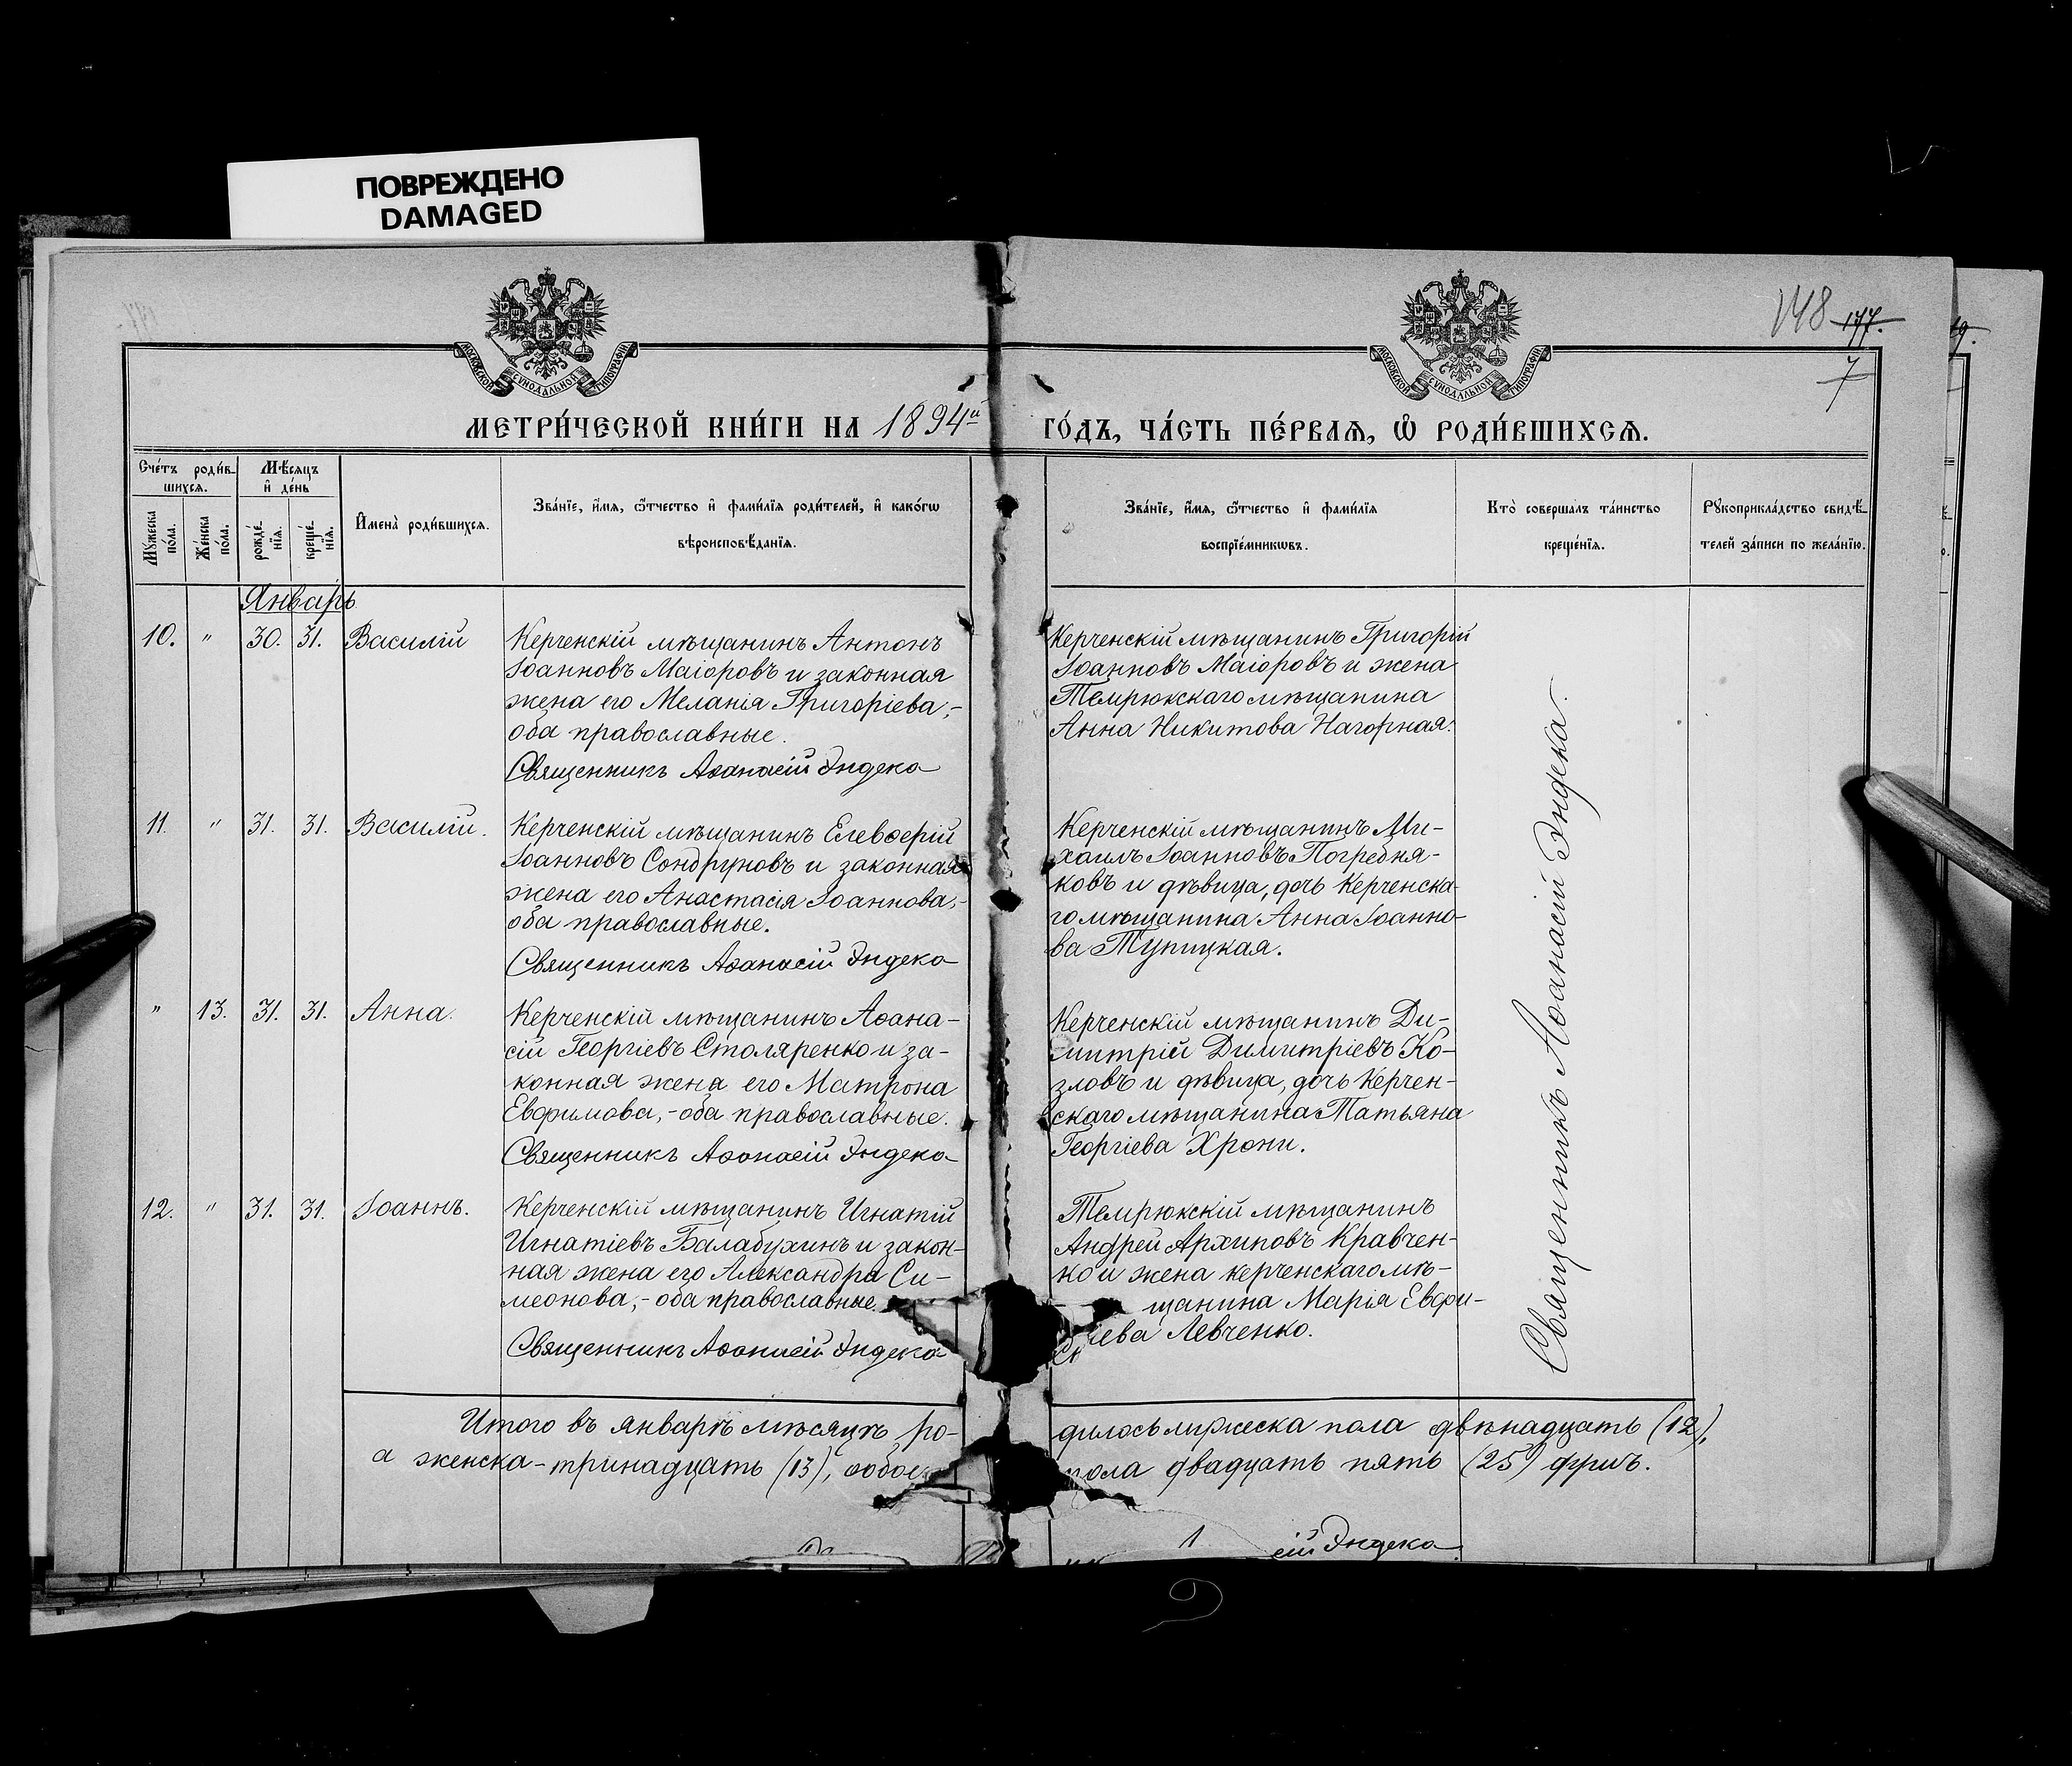 ПОВРЕЖДЕНО
DAMAGED
МОСКОВСКОЙ СѴНОДАЛЬНОЙ ТИПОГРАФІИ
МОСКОВСКОЙ СѴНОДАЛЬНОЙ ТИПОГРАФІИ
148 177.
7
МЕТРИ́ЧЕСКОЙ КНИ́ГИ НА 1894й
ГО́ДЪ, ЧА́СТЬ ПЕ́РВАЯ, Ѡ РОДИ́ВШИХСЯ.
Сче́тъ роди́в-
шихся.
Мѣсяцъ
и де́нь
Мꙋ́жеска по́ла.
Же́нска по́ла.
рожде́нїя.
креще́нїя.
И҆мена̀ роди́вшихся.
Зва́нїе, и҆́мя, ѻ҆́тчество и҆ фами́лїя роди́телей, и҆ како́гѡ
вѣроисповѣ́данїя.
Зва́нїе, и҆́мя, ѻ҆́тчество и҆ фами́лїя
воспрїе́мникѡвъ.
Кто̀ соверша́лъ та́инство
креще́нїя.
Рꙋкоприкла́дство свидѣ́-
телей за́писи по жела́нїю.
Январь
10. " 30. 31. Василій
Керченскій мѣщанинъ Антонъ
Іоанновъ Маіоровъ и законная
жена его Меланія Григоріева,-
оба православные.
Священникъ Аѳанасій Эндека
Керченскій мѣщанинъ Григорій
Іоанновъ Маіоровъ и жена
Темрюкскаго мѣщанина
Анна Никитова Нагорная.
11. " 31. 31. Василій.
Керченскій мѣщанинъ Елевѳерій
Іоанновъ Сондруновъ и законная
жена его Анастасія Іоаннова,-
оба православные.
Священникъ Аѳанасій Эндека
Керченскій мѣщанинъ Ми-
хаилъ Іоанновъ Погребня-
ковъ и дѣвица, дочь Керченска-
го мѣщанина Анна Іоанно-
ва Тупицкая.
" 13. 31. 31. Анна.
Керченскій мѣщанинъ Аѳана-
сій Георгіевъ Столяренко и за-
конная жена его Матрона
Евѳимова,-оба православные.
Священникъ Аѳанасій Эндека
Керченскій мѣщанинъ Ди-
митрій Димитріевъ Ко-
зловъ и дѣвица, дочь Керчен-
скаго мѣщанина Татьяна
Георгіева Хрони.
12. " 31. 31. Іоаннъ.
Керченскій мѣщанинъ Игнатій
Игнатіевъ Балабухинъ и закон-
ная жена его Александра Си-
меонова,-оба православные.
Священникъ Аѳанасій Эндека
Темрюкскій мѣщанинъ
Андрей Архиповъ Кравчен-
ко и жена керченскаго мѣ-
щанина Марія Евфи-
іева Левченко.
Священникъ Аѳанасій Эндека.
Итого въ январѣ мѣсяцѣ ро-
дилось мужеска пола двѣнадцать (12),
а женска-тринадцать (13), обое
пола двадцать пять (25) душъ.
сій Эндека